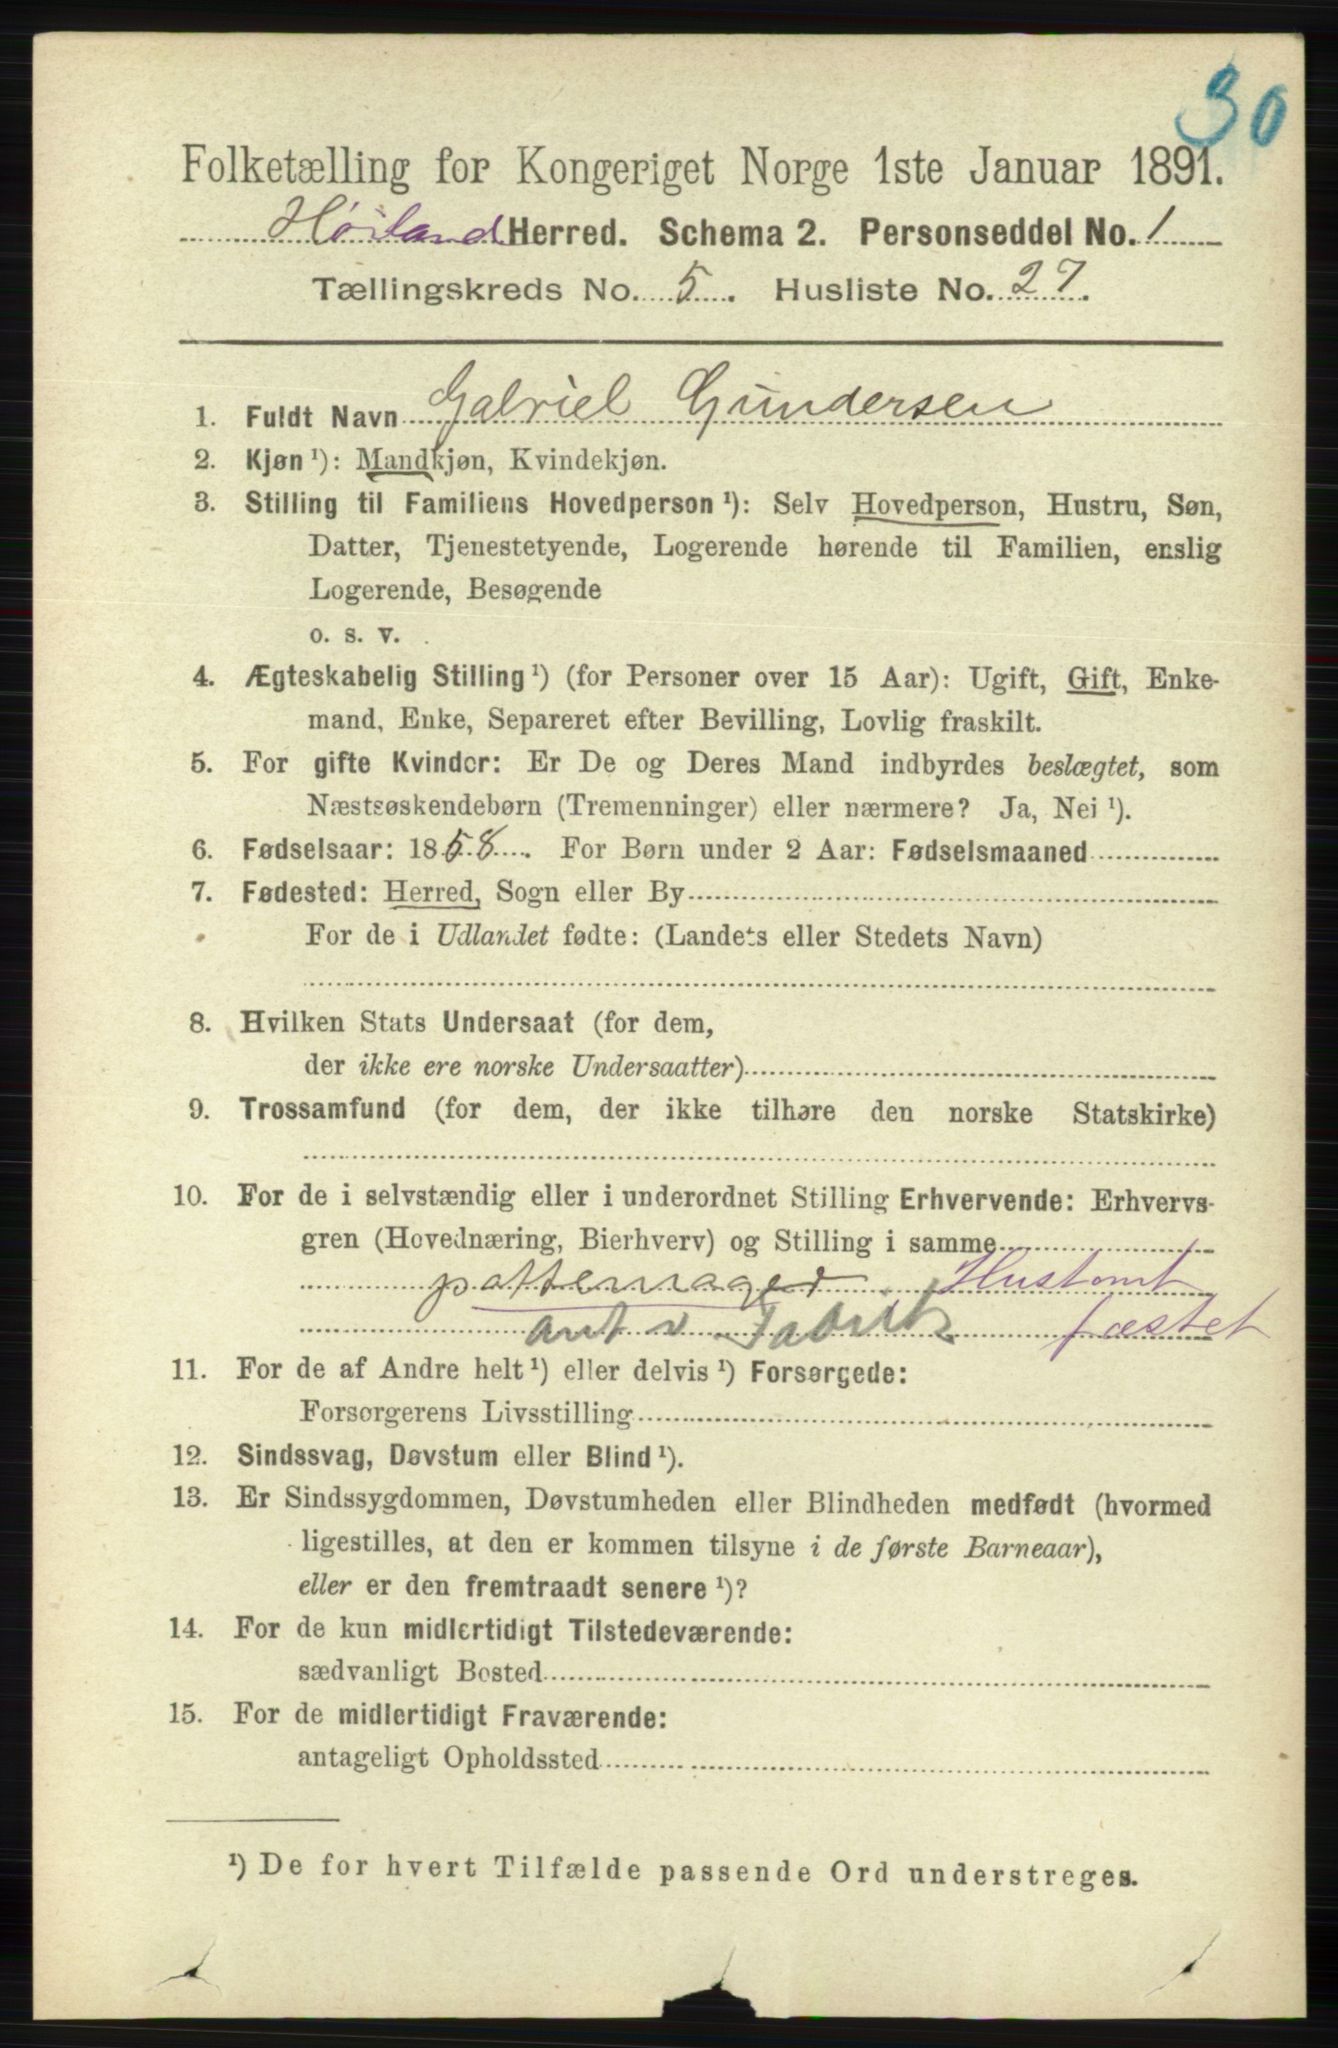 30
Folketælling for Kongeriget Norge 1ste Januar 1891.
Høiland Herred. Schema 2. Personseddel No. 1
Tællingskreds No. 5. Husliste No. 27.
1. Fuldt Navn Gabriel Gundersen
2. Kjøn ¹): Mandkjøn, Kvindekjøn.
3. Stilling til Familiens Hovedperson ¹): Selv Hovedperson, Hustru, Søn,
Datter, Tjenestetyende, Logerende hørende til Familien, enslig
Logerende, Besøgende
o. s. v.
4. Ægteskabelig Stilling ¹) (for Personer over 15 Aar): Ugift, Gift, Enke-
mand, Enke, Separeret efter Bevilling, Lovlig fraskilt.
5. For gifte Kvinder: Er De og Deres Mand indbyrdes beslægtet, som
Næstsøskendebørn (Tremenninger) eller nærmere? Ja, Nei ¹).
6. Fødselsaar: 1858. For Børn under 2 Aar: Fødselsmaaned
7. Fødested: Herred, Sogn eller By
For de i Udlandet fødte: (Landets eller Stedets Navn)
8. Hvilken Stats Undersaat (for dem,
der ikke ere norske Undersaatter)
9. Trossamfund (for dem, der ikke tilhøre den norske Statskirke)
10. For de i selvstændig eller i underordnet Stilling Erhvervende: Erhvervs-
gren (Hovednæring, Bierhverv) og Stilling i samme
pottemager Hustomt
v. Fabrik fæstet
11. For de af Andre helt ¹) eller delvis ¹) Forsørgede:
Forsørgerens Livsstilling
12. Sindssvag, Døvstum eller Blind ¹).
13. Er Sindssygdommen, Døvstumheden eller Blindheden medfødt (hvormed
ligestilles, at den er kommen tilsyne i de første Barneaar),
eller er den fremtraadt senere ¹)?
14. For de kun midlertidigt Tilstedeværende:
sædvanligt Bosted
15. For de midlertidigt Fraværende:
antageligt Opholdssted
¹) De for hvert Tilfælde passende Ord understreges.